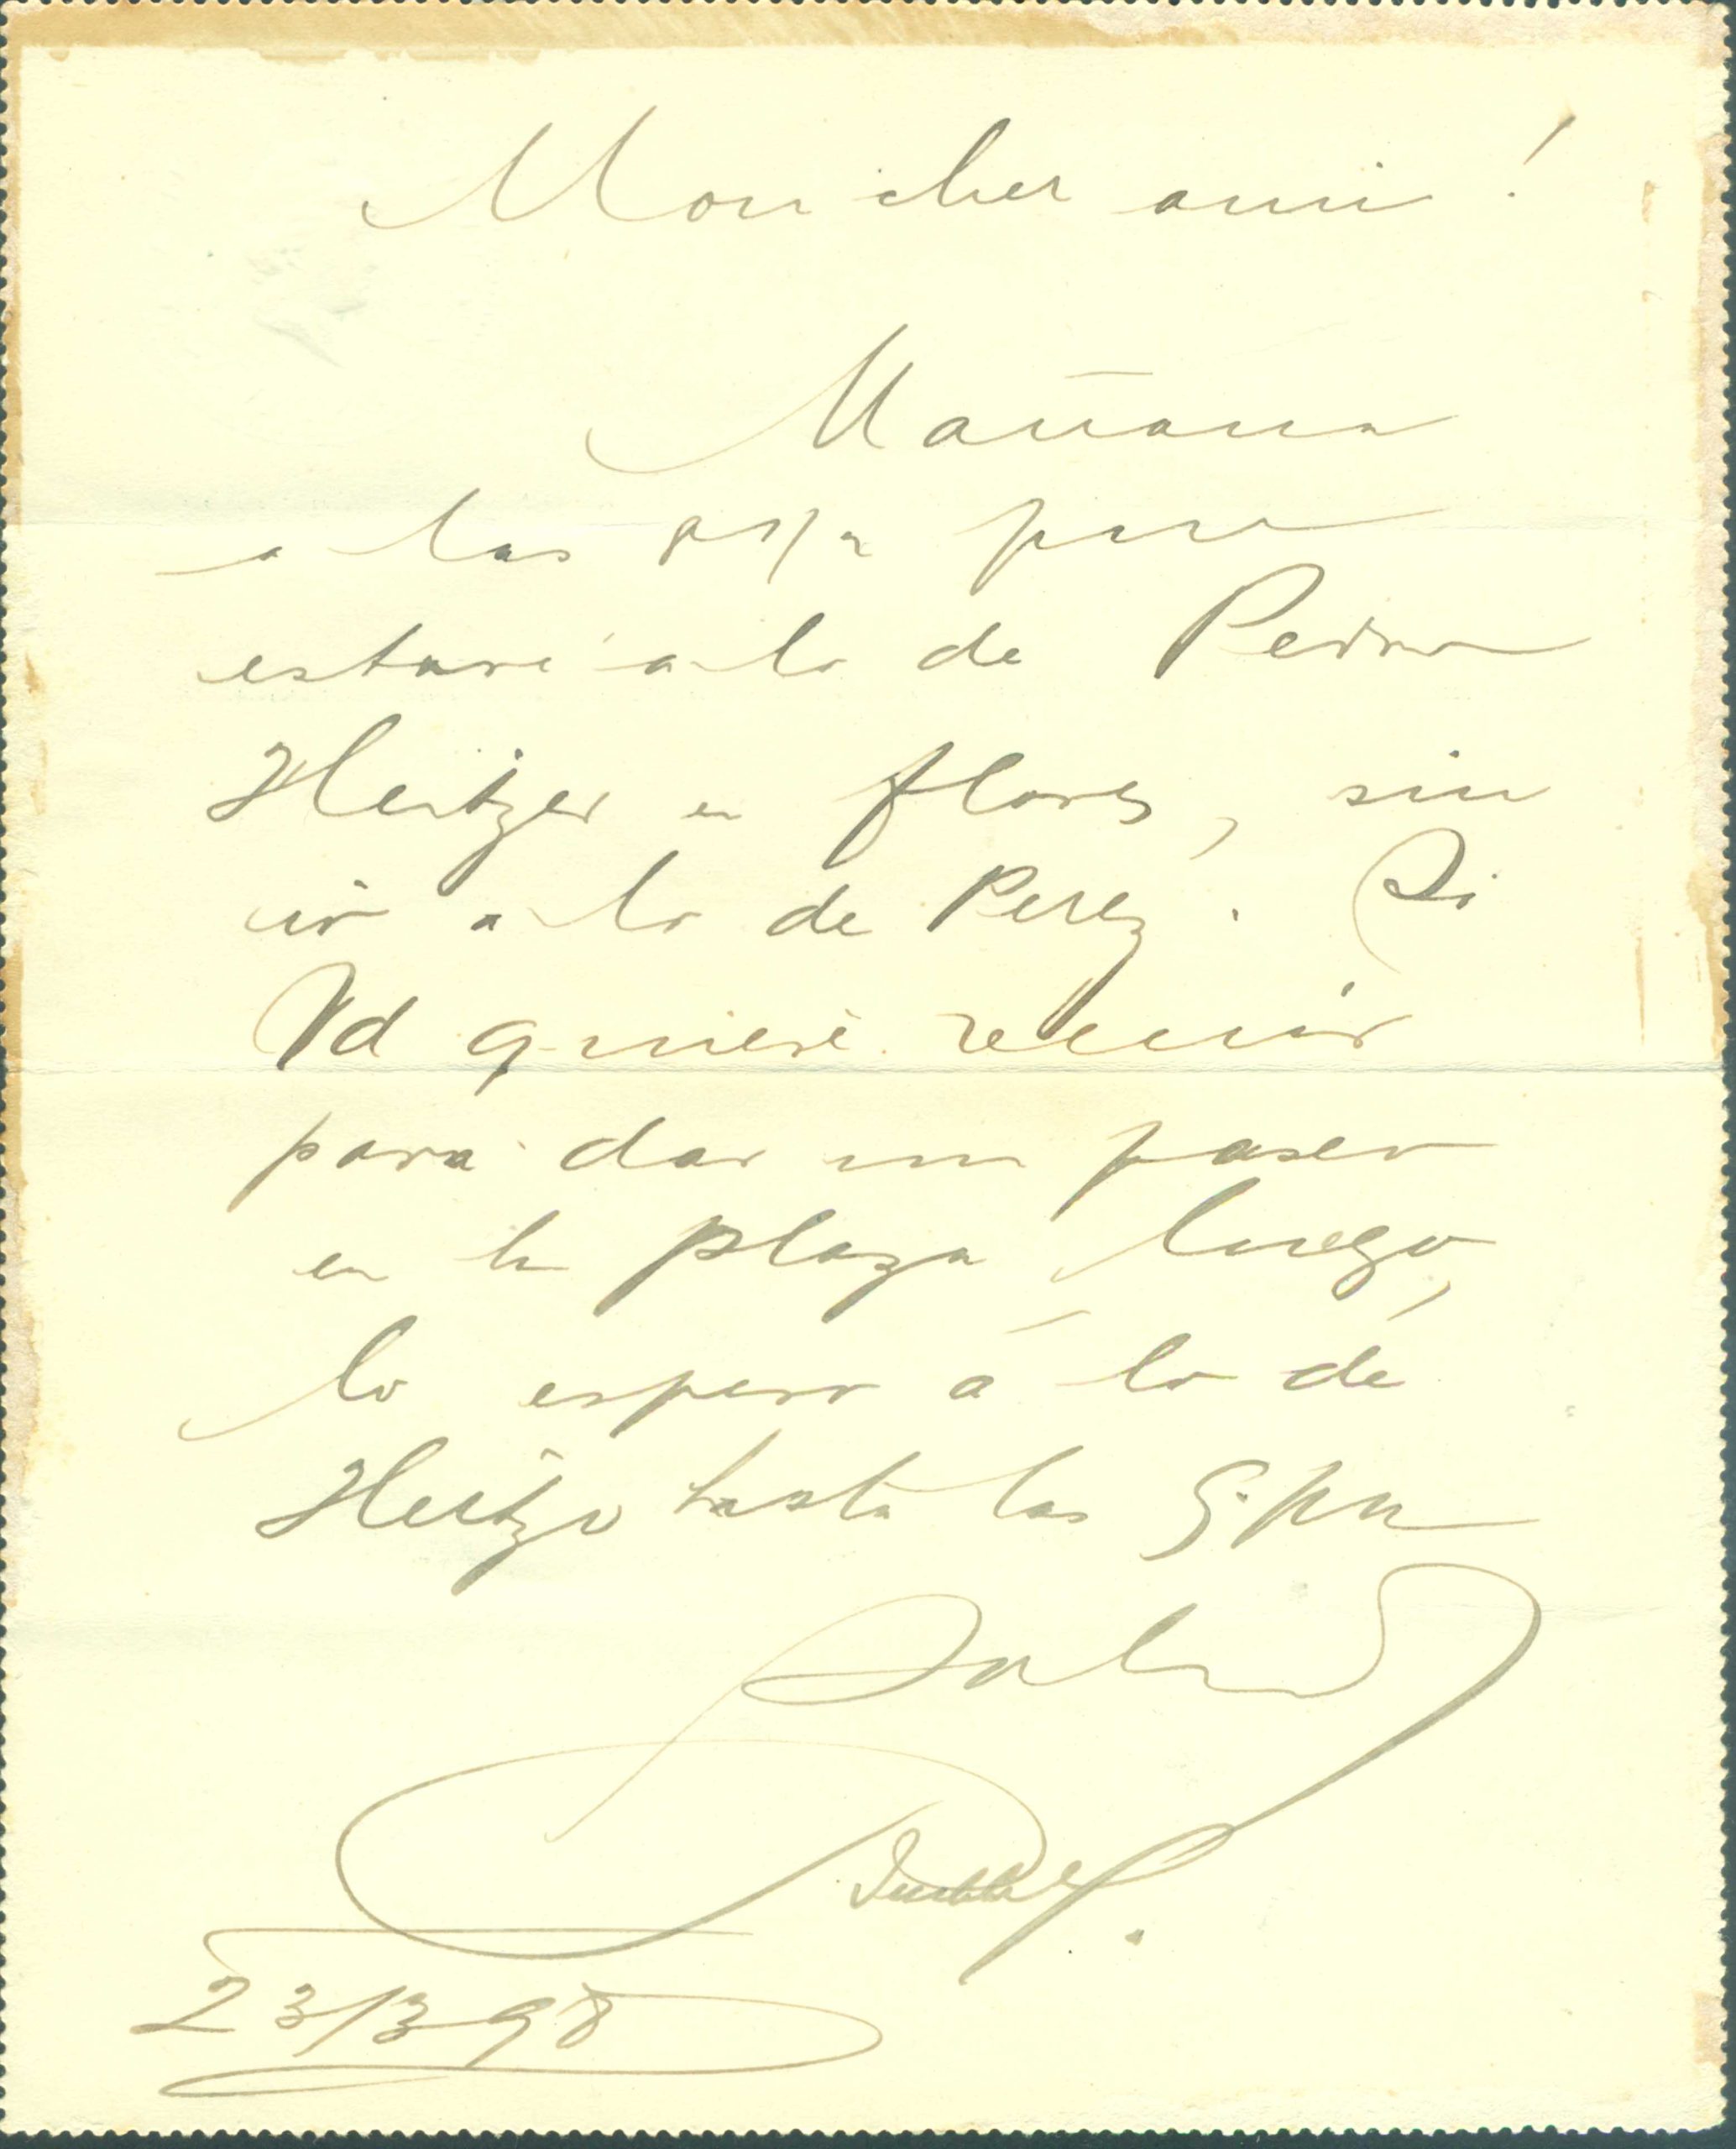 Mon cher ami!
Mañana
a las 8 1/2 pm
estaré a lo de Pedro
Heitzer en Flores, sin
ir a lo de Perez. Si
Vd quiere venir
para dar un paseo
en la plaza luego,
lo espero á lo de
Heitzer hasta las 9 pm
23/3 98